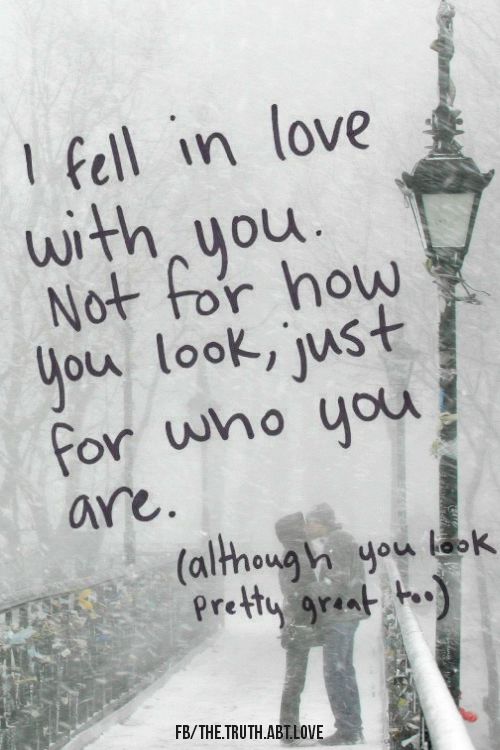 I fell in love
with you.
Not for how
you look, just
for who you
are.
(although you look
pretty great too)
FB/THE.TRUTH.ABT.LOVE